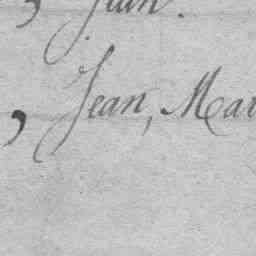 , Jean.
, Jean, Mar